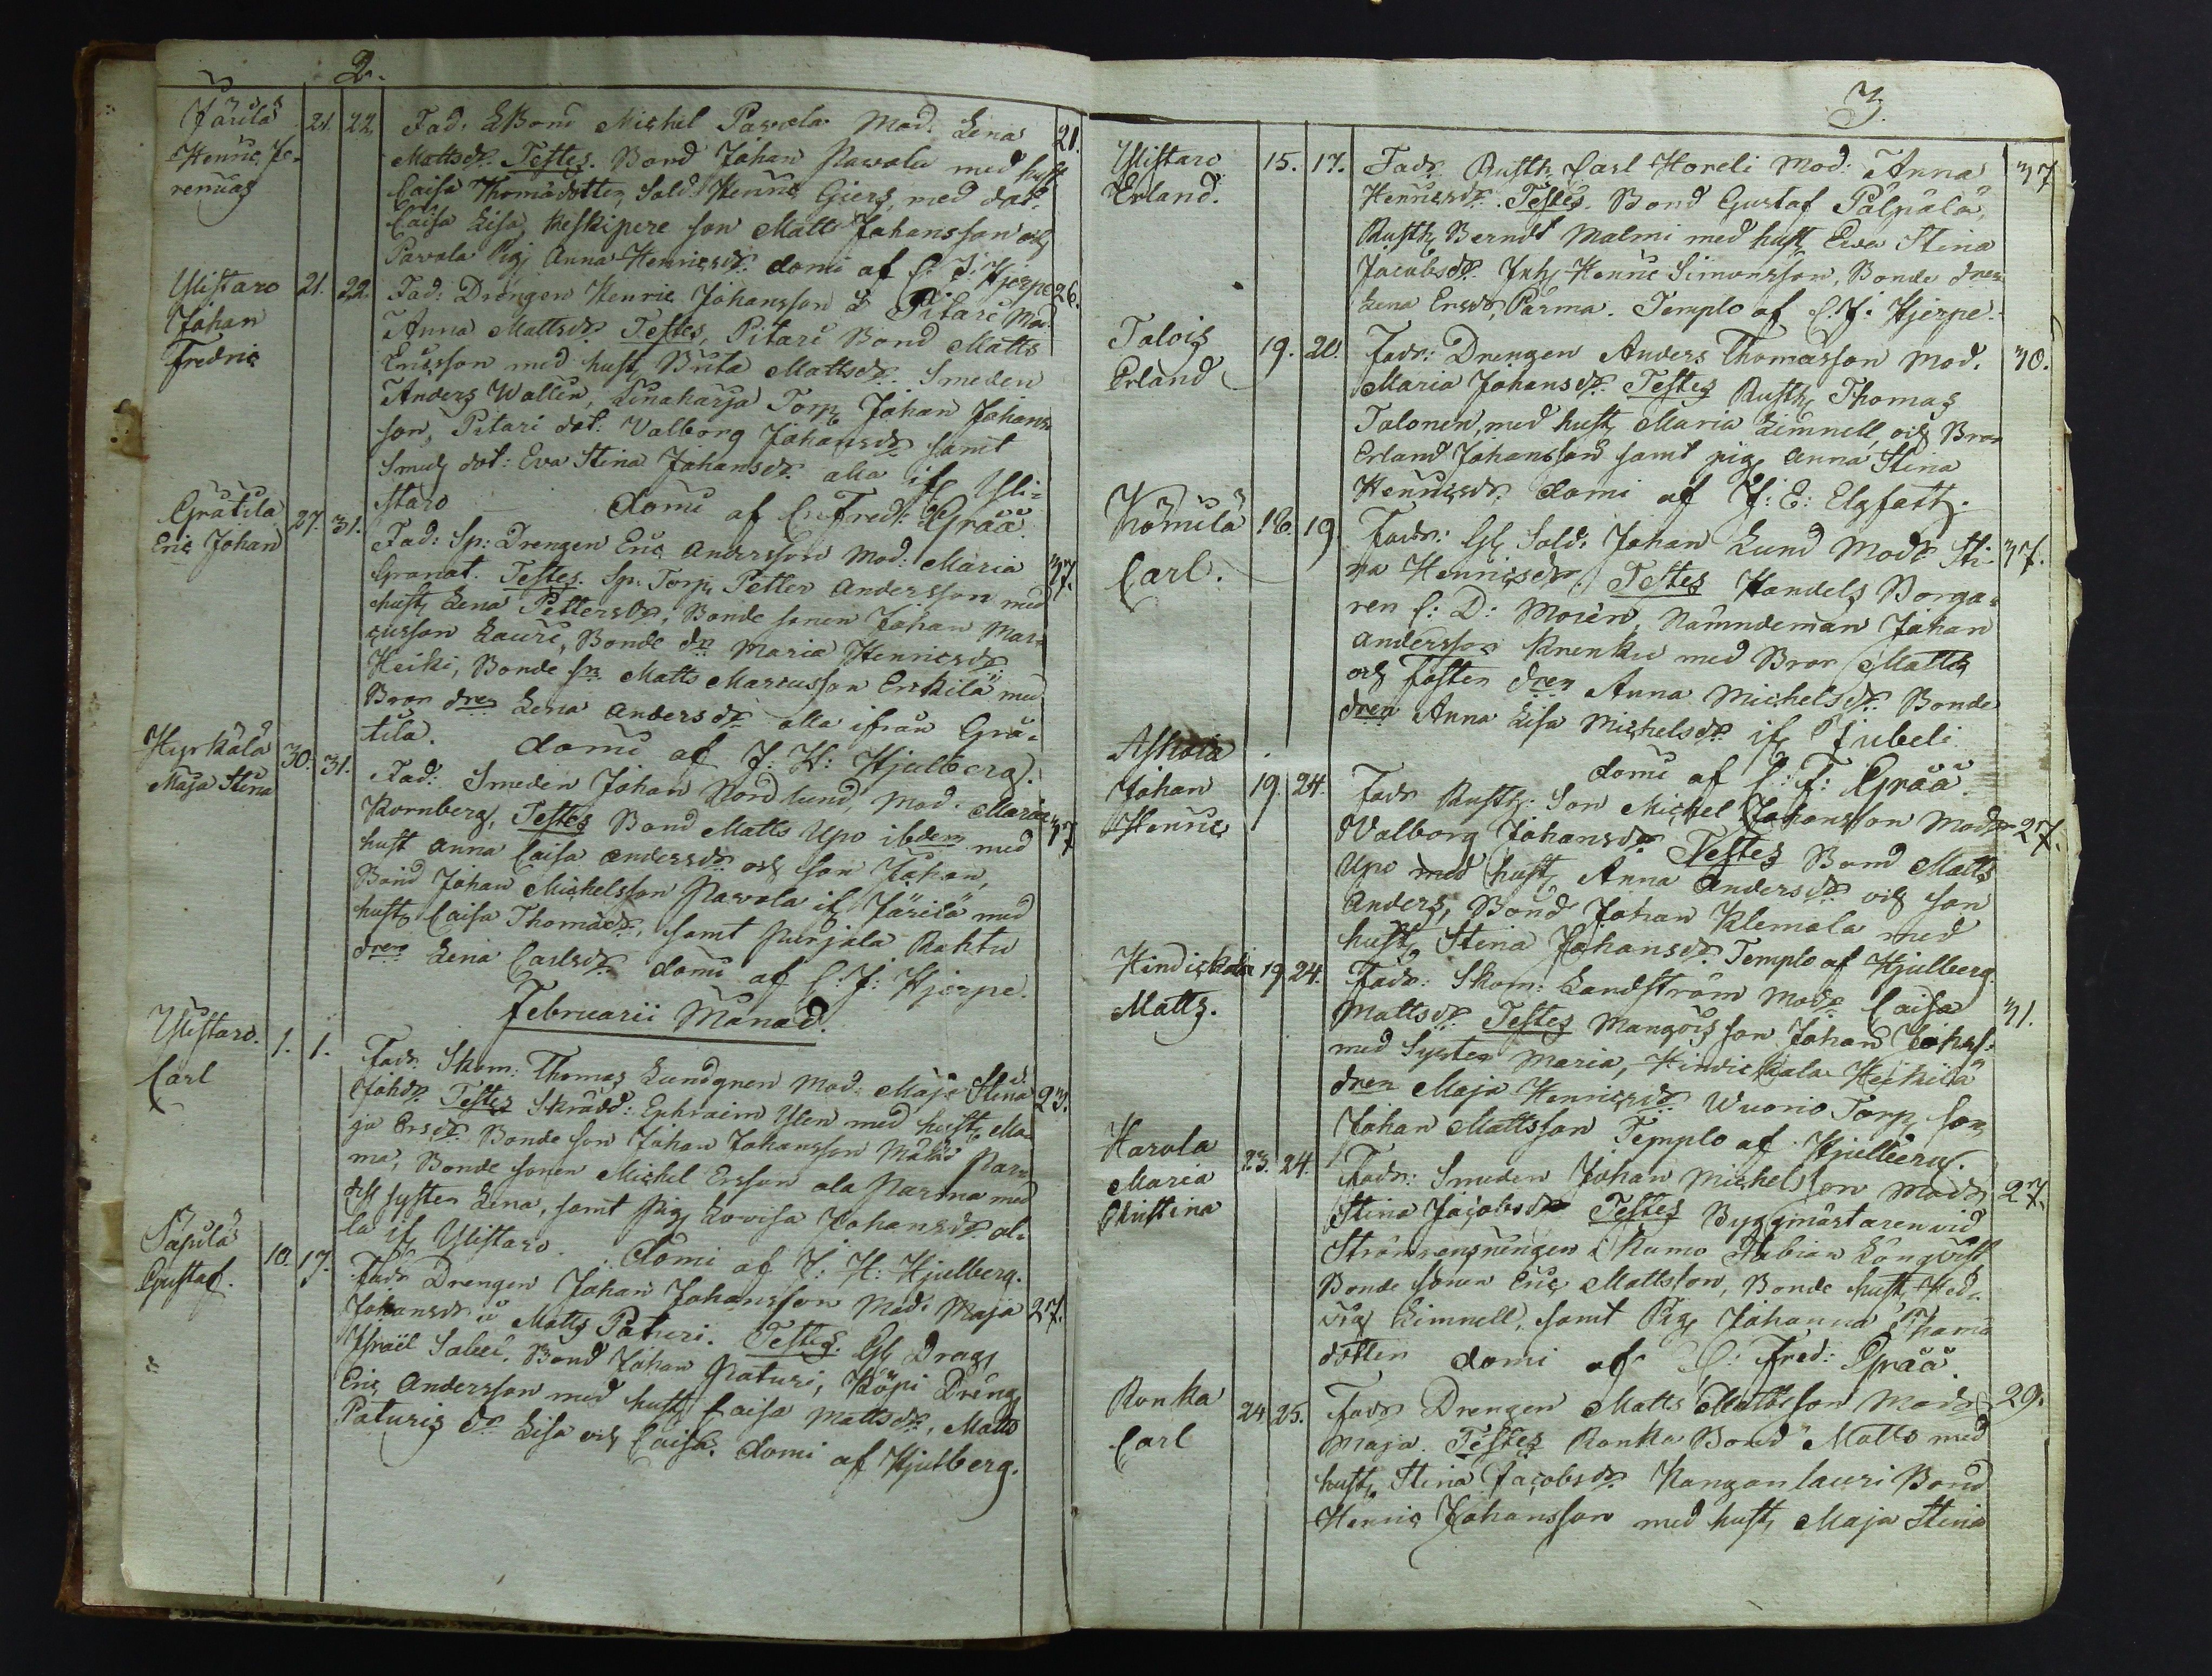 2.
Järilä 21. 22. Fad. LBond Michel Pavola Mod. Lena 21.
Henric Je-
remias
Mattsdr. Testes. Bond Johan Pavola med hust
Caisa Thomädotter, Sold. Henric Giers, med dotr.
Caisa Lisa, Keskipere son Matts Johansson och
Pavola Pig Anna Henricsdr. domi af C. J. Hjerpe
Ylistaro 21. 22. Fad: Drängen Henric Johansson å Pitari Mod. 26.
Johan
Fredric
Anna Mattsdr. Testes, Pitari Bond Matts
Ericsson med hust, Brita Mattsdr. Smeden
Anders Wallin, Linaharja Torp, Johan Johans
son, Pitari dot: Valborg Johansdr. samt
Smed, dot: Eva Stina Johansdr. alla if Yli-
staro domi af C. Fred: Grää.
Gråtila 27. 31. Fad: Sp: Drängen Eric Andersson Mod: Maria 37.
Eric Johan
Granat. Testes. Sp. Torp, Petter Andersson med
hust, Lena Pettersdr, Bonde sonen Johan Mar-
cusson Lauri, Bonde dr. Maria Henricsdr.
Heiki, Bonde sn. Matts Marcusson Erkilä med
Bror dren Lena Andersdr. alla ifrån Grå-
tila. domi af J: H: Hjulberg.
Hyrkälä 30. 31. Fad: Smeden Johan Nordlund, Mod. Maria 37
Maja Stina
Kornberg, Testes Bond Matts Upo ibdem med
hust Anna Caisa Andersdr. och son Johan,
Bond Johan Michelsson Pavola if Järilä med
hust, Caisa Thomädr, samt Purjala Rahtu
dren Lena Carlsdr. domi af C: J: Hjerpe.
Februarii Månad.
Ylistaro. 1. 1. Fadr. Skom: Thomas Lundgren Mod: Maja Stina 23.
Carl
Johdr. Testes Skrädd: Ephraim Ylen med hust, Ma-
ja Ersdr. Bonde son Johan Johansson Par-
ma, Bonde sonen Michel Ersson ala Parma med
dess syster Lena, samt Pig Lovisa Johansdr. al-
la if Ylistaro. domi af J: H: Hjulberg.
Säpilä 10. 17. Fadr Drängen Johan Johansson Mod: Maja 27.
Gustaf.
Johansdr å Matts Paturi. Testes. Gl Drag,
Israël Saleei. Bond Johan Paturi, Köpi Dreng
Eric Andersson med hust, Caisa Mattsdr, Matts
Paturis dr Lisa och Caisa. domi af Hjulberg.
3.
Ylistaro 15. 17. Fadr. Rusth, Carl Horeli Mod: Anna 37
Erland.
Henricsdr. Testes. Bond Gustaf Pälpälä,
Rusth, Berndt Malmi med hust, Eva Stina
Jacobsdr. Inh, Henric Simonsson, Bonde dren
Lena Ersdr, Parma. Templo af C. J. Hjerpe.
Talois 19. 20. Fadr: Drengen Anders Thomasson Mod. 30.
Erland
Maria Johansdr. Testes Rusth, Thomas
Talonen, med hust, Maria Limnell, och Bror
Erland Johansson samt pig, Anna Stina
Henricsdr. domi af J: E: Elgfoth.
Kömilä 18. 19 Fadr: Gl, Sold: Johan Lund Modr Sti- 37.
Carl.
na Henricsdr, Testes Handels Borga-
ren C: D: Morén, Nämndeman Johan
Andersson Krenku med Bror Matts
och Foster dren Anna Michelsdr. Bonde
dren Anna Lisa Michelsdr. if Sjubeli.
domi af C: F: Grää.
Askola
Johan 19. 24. Fadr Rusth: Son Michel Johansson Modr 27.
Henric
Valborg Johansdr. Testes Bond Matts
Upo med hust, Anna Andersdr och son
Anders, Bond Johan Klemola med
hust, Stina Johansdr. Templo af Hjulberg.
Hindickala 19. 24. Fadr: Skom: Landström Modr Caisa 31.
Matts.
Mattsdr. Testes Mangois son Johan Johs:
med Syster Maria, Hindickala Heikilä
dren Maja Henricsdr. Wuorio Torp, son
Johan Mattsson Templo af Hjulberg.
Harola 23. 24. Fadr: Smeden Johan Michelsson Modr 27.
Maria
Christina
Stina Jacobsdr Testes Byggmästaren vid
Strömrensningen i Kumo Fabian Långqvist
Bonde sonen Eric Mattsson, Bonde hust, Hed-
vig Limnell, samt Pig, Johanna Thoma
dotter domi af C: Fred: Grää.
Ronka 24 25. Fadr Drengen Matts Mattsson Modr 29.
Carl
Maja. Testes Ronka Bond Matts med
hust, Stina Jacobsdr. Kangan lauri Bond
Henric Johansson med hust, Maja Stina